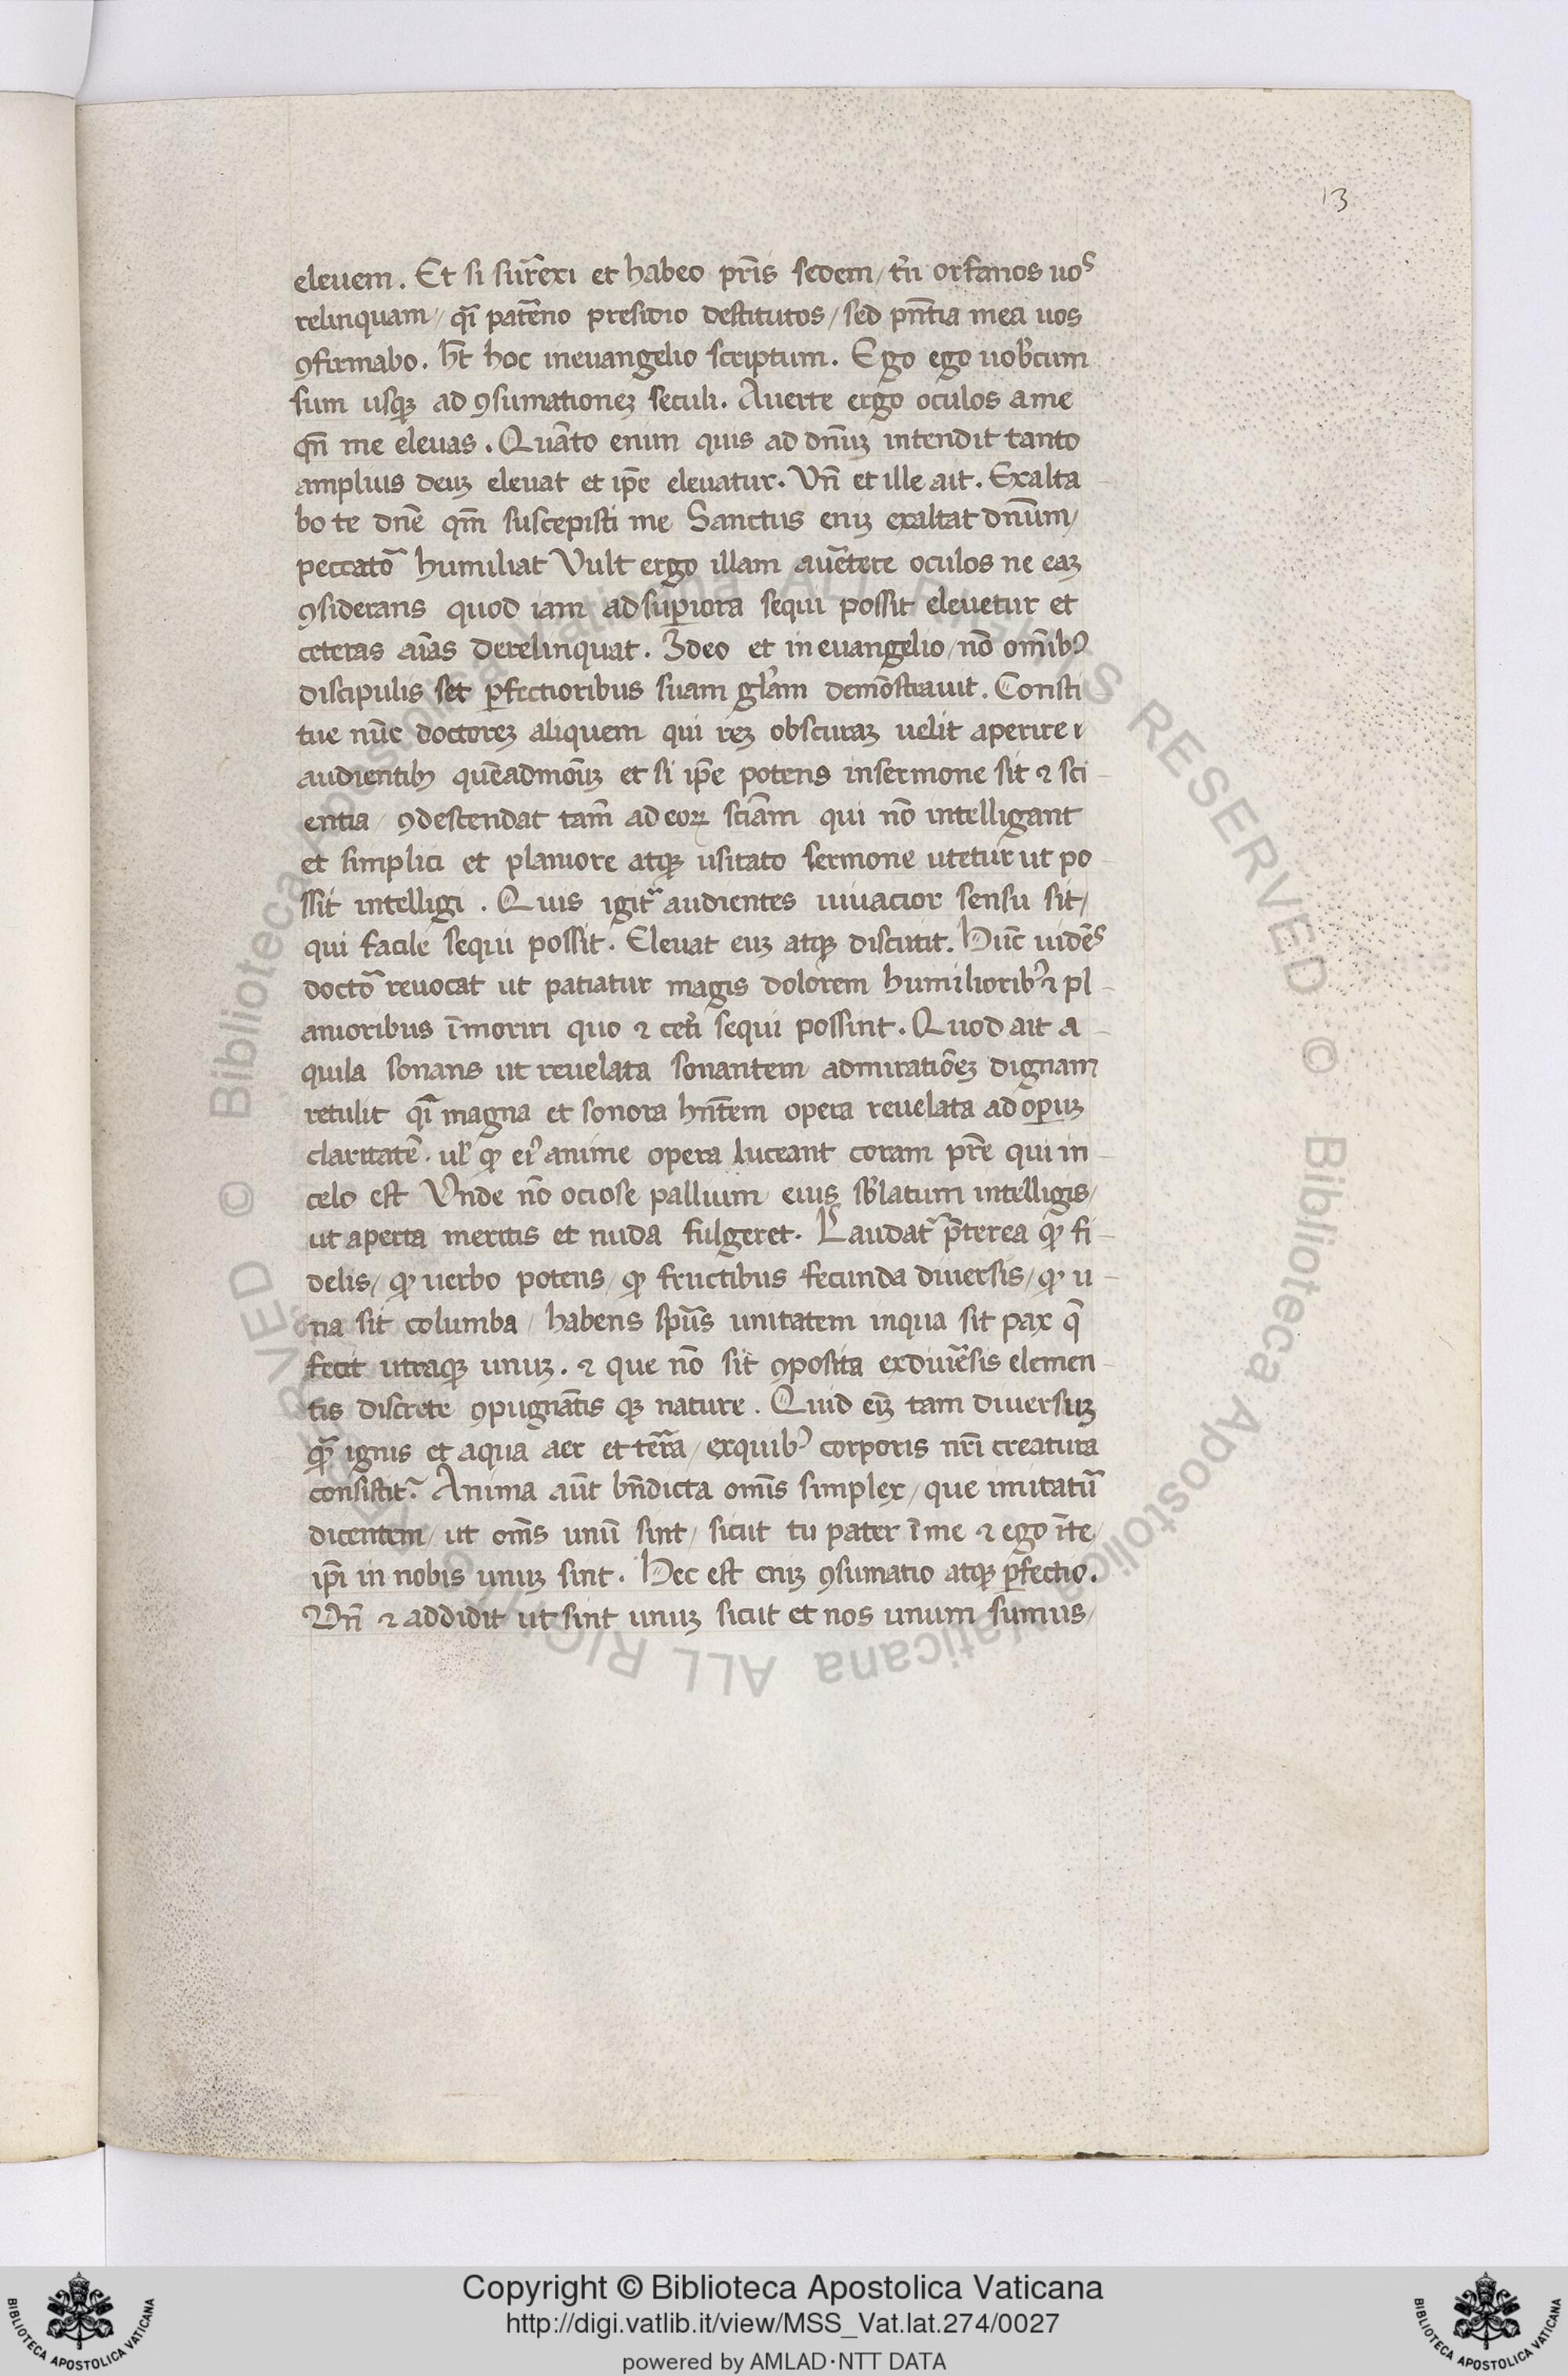 13
eleuem. Et si surrexi et habeo pr̄is sedem/ tn̄ orfanos uos
relinquam/ q̄i pat̄erno presidio destitutos/ sed pn̄tia mea uos
ꝯfirmabo. h̄t hoc ineuangelio scriptum. Ego ego uob̄cum
sum usqꝫ ad ꝯsumationeꝫ seculi. Auerte ergo oculos ame
qn̄ me eleuas. Quāto enim quis ad dn̄ūꝫ intendit tanto
amplius deuꝫ eleuat et ip̄e eleuatur. Vn̄ et ille ait. Exalta
bo te dn̄e qm̄ suscepisti me Sanctus eniꝫ exaltat dn̄um/
peccato᷑ humiliat Vult ergo illam au᷑tere oculos ne eaꝫ
ꝯsiderans quod iam adsuꝑiora sequi possit eleuetur et
ceteras aīas derelinquat. Ideo et in euangelio/ nō om̄ibꝰ
discipulis set ꝑfectioribus suam gl̄am demōstrauit. Consti
tue nūc doctoreꝫ aliquem qui reꝫ obscuraꝫ uelit aperire
audientibꝫ quēadmōuꝫ et si ip̄e potens insermone sit ⁊ sci
entia/ ꝯdescendat tam̄ ad eoꝝ sciām qui nō intelligant
et simplici et planiore atqꝫ usitato sermone utetur ut po
ssit intelligi. Quis igit᷑ audientes uiuacior sensu sit/
qui facile sequi possit. Eleuat euꝫ atqꝫ discutit. Hūc uidēs
docto᷑ reuocat ut patiatur magis dolorem humilioribꝰ ⁊ pl
anioribus īmoriri quo ⁊ cet̄i sequi possint. Quod ait a
quila sonans ut reuelata sonantem admiratiōeꝫ dignam
retulit q̄i magna et sonora hn̄tem opera reuelata ad oꝑuꝫ
claritatē. ul̓ ꝙ eiꝰ anime opera luceant coram pr̄e qui in
celo est Vnde nō ociose pallium eius sb̄latum intelligis/
ut aperta meritis et nuda fulgeret. Laudat᷑ p̄terea ꝙ fi
delis/ ꝙ uerbo potens/ ꝙ fructibus fecunda diuersis/ ꝙ u
na sit columba/ habens sp̄us unitatem inqua sit pax q̄
fecit utraqꝫ unuꝫ. ⁊ que nō sit ꝯposita exdiu᷑sis elemen
tis discrete ꝯpugnātis qꝫ nature. Quid eīꝫ tam diuersuꝫ
qꝫᷓ ignis et aqua aer et t᷑ra/ exquibꝰ corporis nr̄i creatura
consistit᷑ Anima aūt bn̄dicta om̄is simplex/ que imitatū᷑
dicentem/ ut om̄s unū sint/ sicut tu pater ī me ⁊ ego īte/
ip̄i in nobis unuꝫ sint. Hec est eniꝫ ꝯsumatio atqꝫ ꝑfectio.
Vn̄ ⁊ addidit ut sint unuꝫ sicut et nos unum sumus/
Copyright © Biblioteca Apostolica Vaticana
http://digi.vatlib.it/view/MSS_Vat.lat.274/0027
powered by AMLAD·NTT DATA
BIBLIOTECA APOSTOLICA VATICANA
BIBLIOTECA APOSTOLICA VATICANA
© Biblioteca Apostolica Vaticana ALL RIGHTS RESERVED © Biblioteca Apostolica Vaticana ALL RIGHTS RESERVED